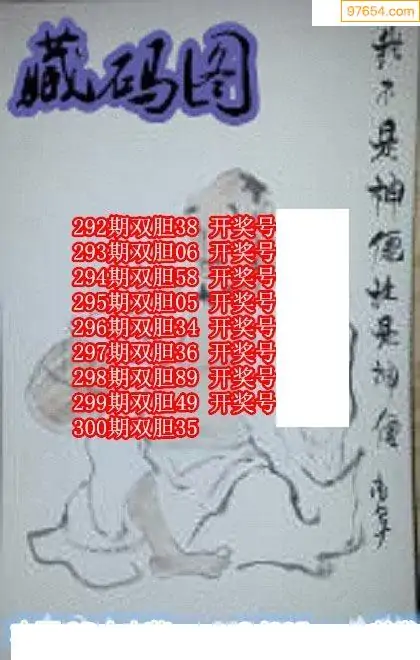 97654.com
藏码图
292期双胆38 开奖号
293期双胆06 开奖号
294期双胆58 开奖号
295期双胆05 开奖号
296期双胆34 开奖号
297期双胆36 开奖号
298期双胆89 开奖号
299期双胆49 开奖号
300期双胆35
我不是神僊谁是神僊